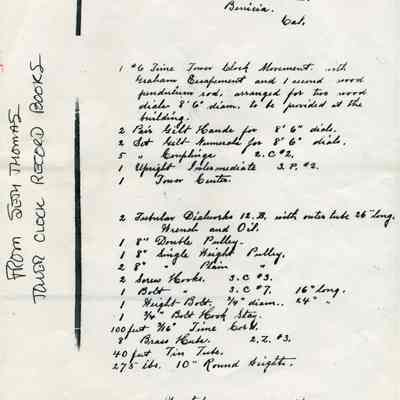 Benicia.
Cal.
1 #6 Time Tower Clock Movement with
Graham Escapement and 1 second wood
pendulum rod, arranged for two wood
dials 8' 6" diam. to be provided at the
building.
2 Pair Gilt Hands for 8' 6" dials.
2 Set Gilt Numerals for 8' 6" dials.
5 " Couplings 2.C #2.
1 Upright Intermediate 3.P. #2.
1 Tower Center.
2 Tubular Dialworks 12.B. with outer tube 26" long.
Wrench and Oil.
1 8" Double Pulley.
1 8" Single Weight Pulley.
2 8" " Plain "
2 Screw Hooks. 3.C #3.
1 Bolt " 3.C #7. 16" long.
1 Weight Bolt. 3/4" diam. 24" "
1 3/4" Bolt Hook Stay.
100 feet 3/16" Time Cord.
8 Brass Hubs. 2.Z. #3.
40 feet Tin Tube.
275 lbs. 10" Round Weights.
FROM SETH THOMAS
TOWER CLOCK RECORD BOOKS